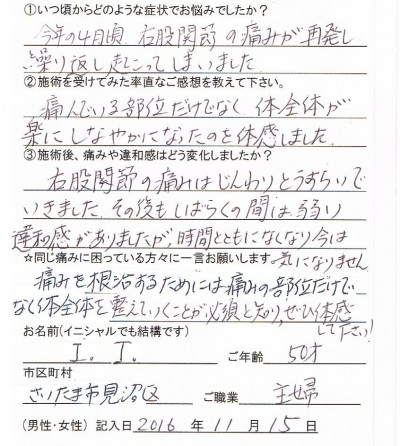 ①いつ頃からどのような症状でお悩みでしたか?
今年の4月頃、右股関節の痛みが再発し
繰り返し起こってしまいました
②施術を受けてみた率直なご感想を教えて下さい。
痛んでいる部位だけでなく体全体が
楽にしなやかになったのを体感しました
③施術後、痛みや違和感はどう変化しましたか?
右股関節の痛みはじんわりとうすらいで
いきました。その後もしばらくの間は弱い
違和感がありましたが時間とともになくなり今は
気になりません
☆同じ痛みに困っている方々に一言お願いします
痛みを根治するためには痛みの部位だけで
なく体全体を整えていくことが必須と知り、ぜひ体感
して下さい!
お名前(イニシャルでも結構です)
I. T. ご年齢 50才
市区町村
さいたま市見沼区 ご職業 主婦
(男性・女性) 記入日 2016 年 11 月 15 日